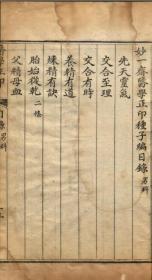 妙一齋醫學正印種子編目錄 男科
先天靈氣
交合至理
交合有時
養精有道
鍊精有訣
胎始從乾 二條
父精母血